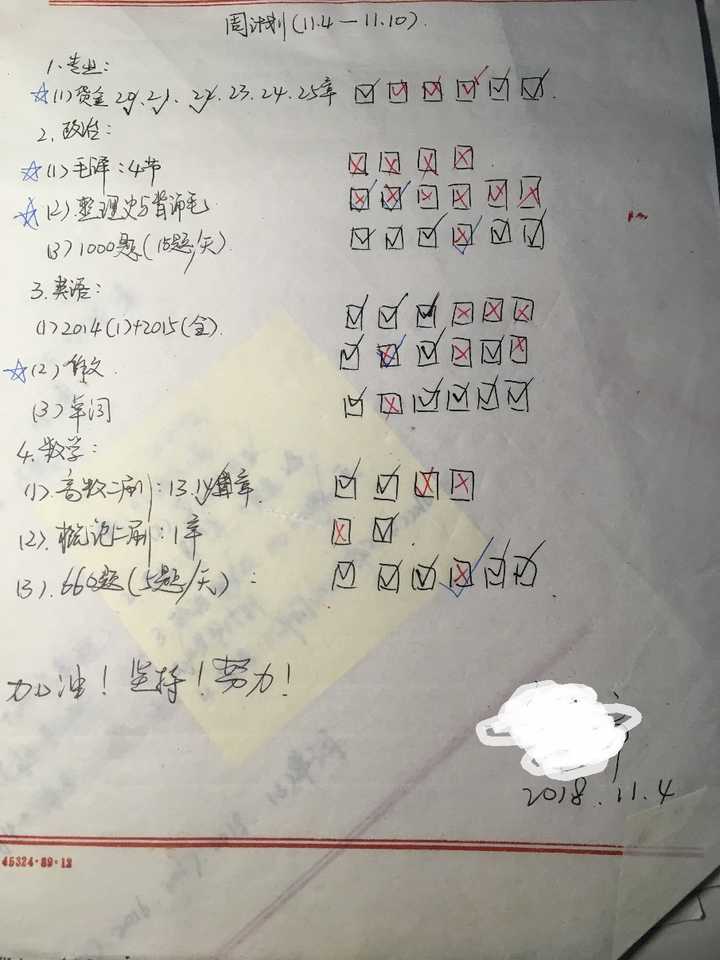 周计划(11.4—11.10).
1.专业:
☆(1)资金20.21.22.23.24.25章
2.政治:
☆(1)毛译:4节
☆(2)整理史与背诵毛
(3)1000题(15题/天).
3.英语:
(1)2014(1)+2015(全).
☆(2)作文.
(3)单词
4.数学:
(1).高数二刷:13.14章.
(2).概论二刷:1章
(3).660题(5题/天):
加油!坚持!努力!
2018.11.4
45324·89·12